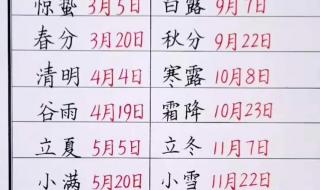 惊蛰 3月5日 白露 9月7日
春分 3月20日 秋分 9月22日
清明 4月4日 寒露 10月8日
谷雨 4月19日 霜降 10月23日
立夏 5月5日 立冬 11月7日
小满 5月20日 小雪 11月22日